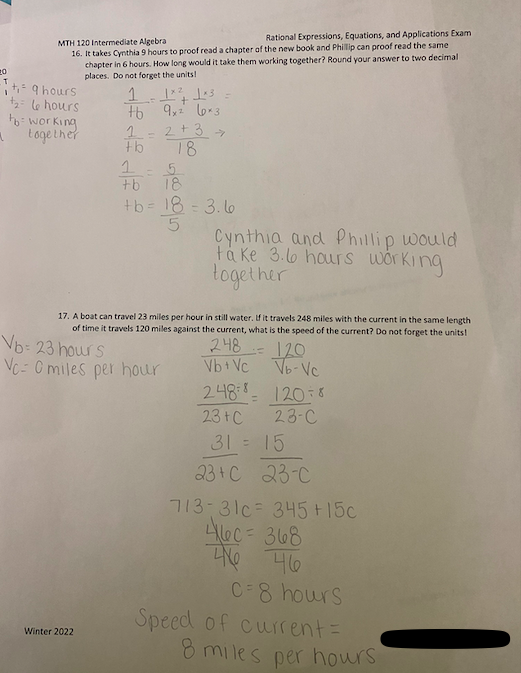 MTH 120 Intermediate Algebra
Rational Expressions, Equations, and Applications Exam
16. It takes Cynthia 9 hours to proof read a chapter of the new book and Phillip can proof read the same
chapter in 6 hours. How long would it take them working together? Round your answer to two decimal
places. Do not forget the units!
t₁= 9 hours
t₂= 6 hours
tb= working
together
1/tb = 1×2/9×2 + 1×3/6×3 =
1/tb = 2+3/18 →
1/tb = 5/18
tb = 18/5 = 3.6
Cynthia and Phillip would
take 3.6 hours working
together
17. A boat can travel 23 miles per hour in still water. If it travels 248 miles with the current in the same length
of time it travels 120 miles against the current, what is the speed of the current? Do not forget the units!
Vb= 23 hours
Vc= 0 miles per hour
248/Vb+Vc = 120/Vb-Vc
248÷8/23+C = 120÷8/23-C
31/23+C = 15/23-C
713-31c = 345+15c
46c/46 = 368/46
C=8 hours
Speed of current=
8 miles per hours
Winter 2022